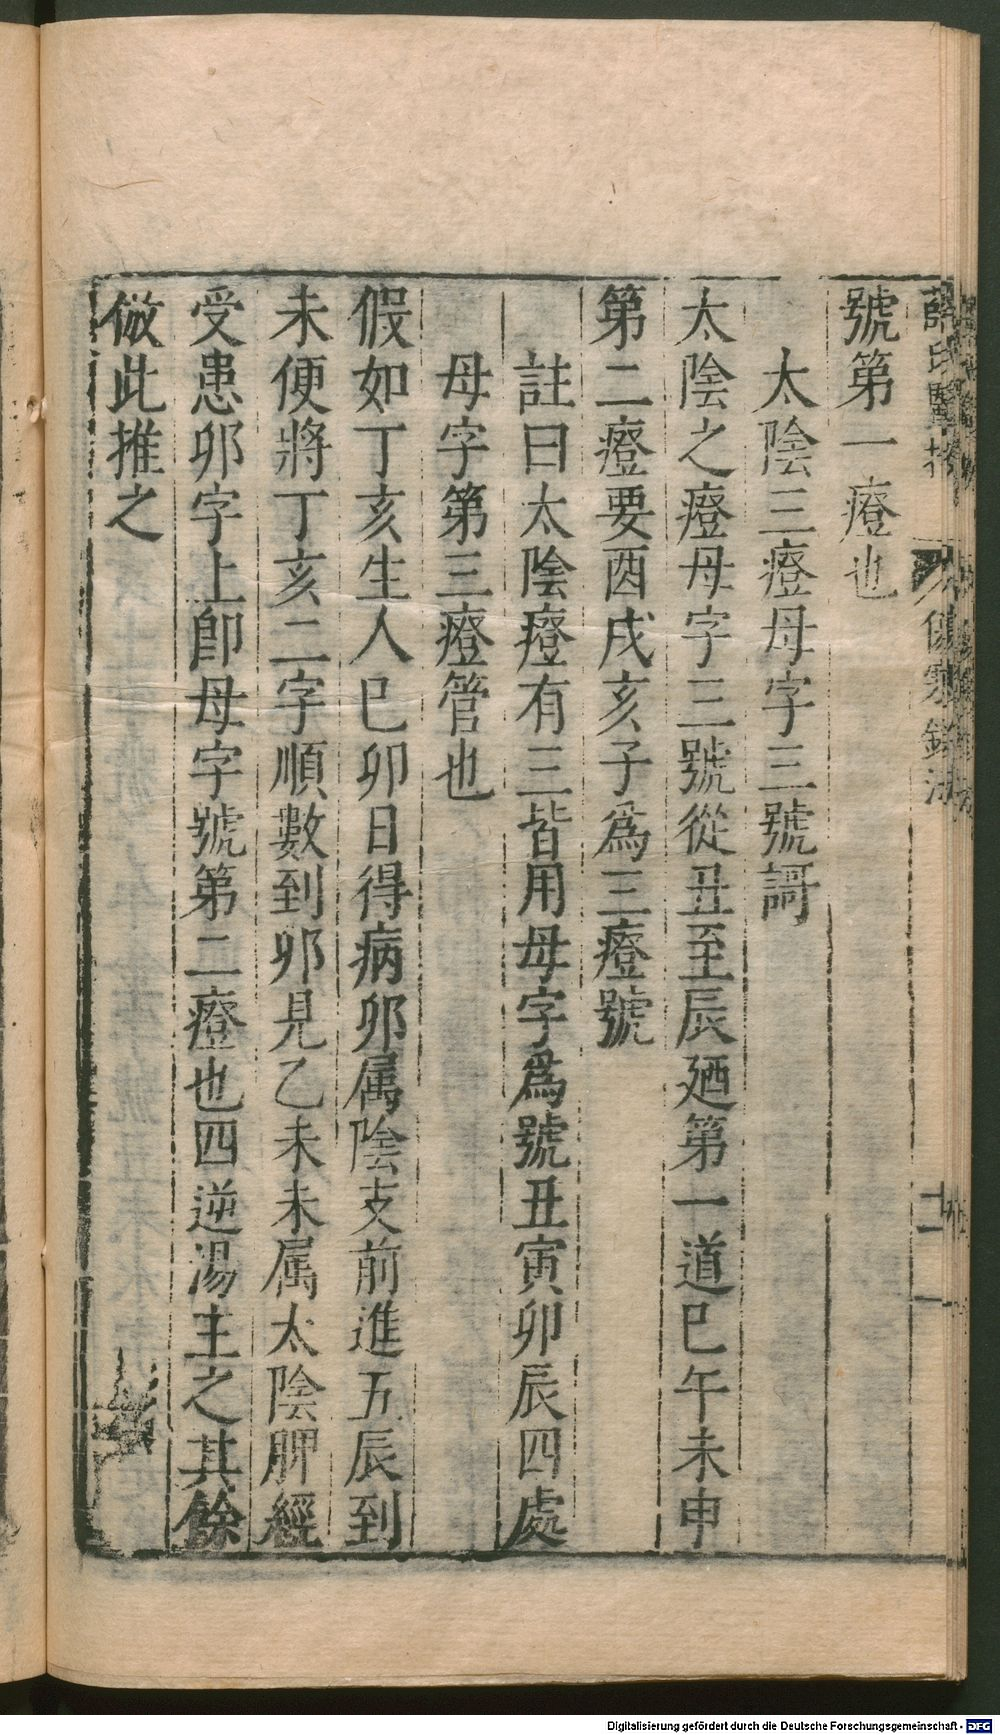 薛氏醫按
傷寒鈐法
十一
號第一𤼵也
太陰三𤼵母字三號謌
太陰之𤼵母字三號從丑至辰廼第一道巳午未申
第二𤼵要酉戌亥子爲三𤼵號
註曰太陰𤼵有三皆用母字爲號丑寅卯辰四處
母字第三𤼵管也
假如丁亥生人巳卯日得病卯属陰支前進五辰到
未便將丁亥二字順數到卯見乙未未属太陰脾經
受患卯字上卽母字號第二𤼵也四逆湯主之其餘
倣此推之
Digitalisierung gefördert durch die Deutsche Forschungsgemeinschaft - DFG